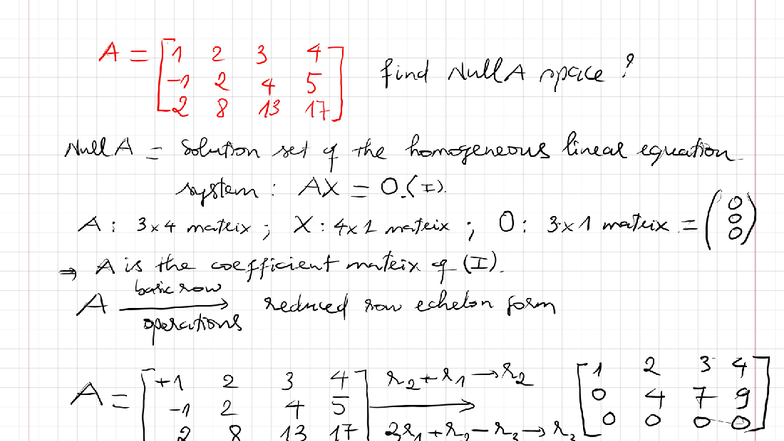 A = [1 2 3 4
-1 2 4 5
2 8 13 17] find Null A space?
Null A = Solution set of the homogeneous linear equation
system : AX = O.(I).
A : 3x4 matrix ; X : 4x1 matrix ; O : 3x1 matrix = (0 0 0)
⇒ A is the coefficient matrix of (I).
A basic row operations → reduced row echelon form
A = [+1 2 3 4 r2+r1→r2 [1 2 3 4
-1 2 4 5 0 4 7 9
2 8 13 17] 3r1+r2-r3→r3 0 0 0 0]